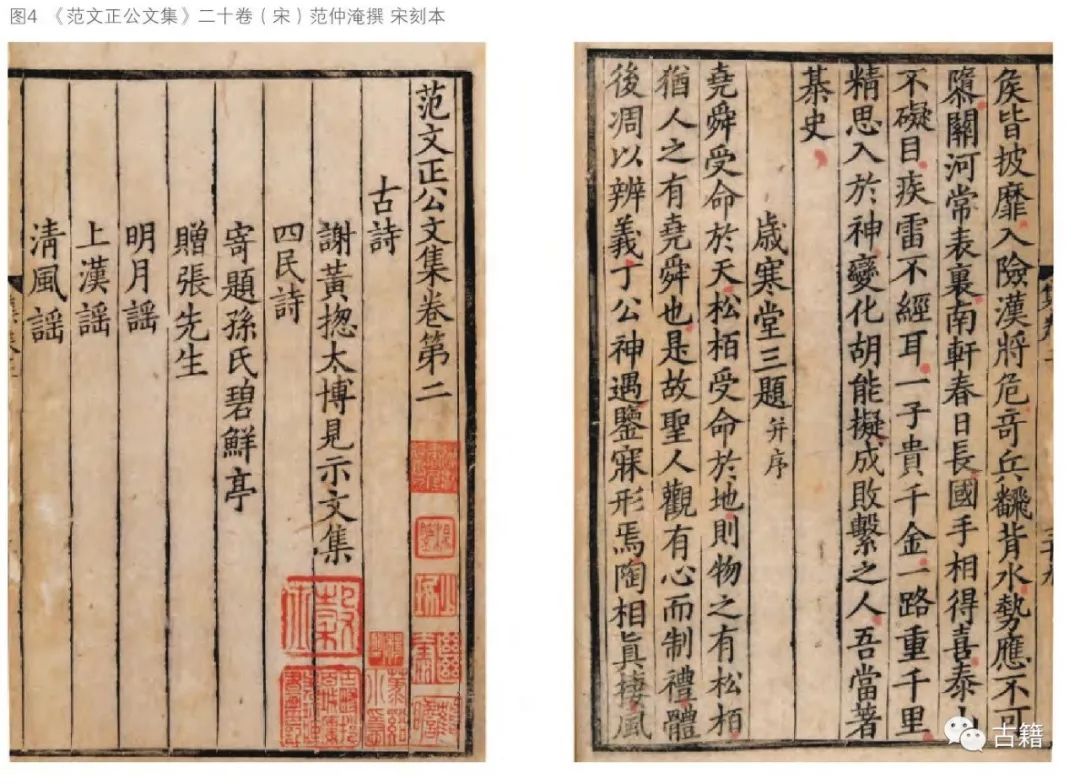 图4 《范文正公文集》二十卷（宋）范仲淹撰 宋刻本
范文正公文集卷第二
古詩
謝黃揔太博見示文集
四民詩
寄題孫氏碧鮮亭
贈張先生
明月謡
上漢謡
清風謡
矦皆披靡入險漢將危竒兵飜背水勢應不可
隳關河常表裏南軒春日長國手相得喜泰山
不礙目疾雷不經耳一子貴千金一路重千里
精思入於神變化胡能擬成敗繫之人吾當著
棊史
歳寒堂三題 并序
堯舜受命於天松栢受命於地則物之有松栢
猶人之有堯舜也是故聖人觀有心而制禮體
後凋以辨義丁公神遇鑒寐形焉陶相眞棲風
古籍